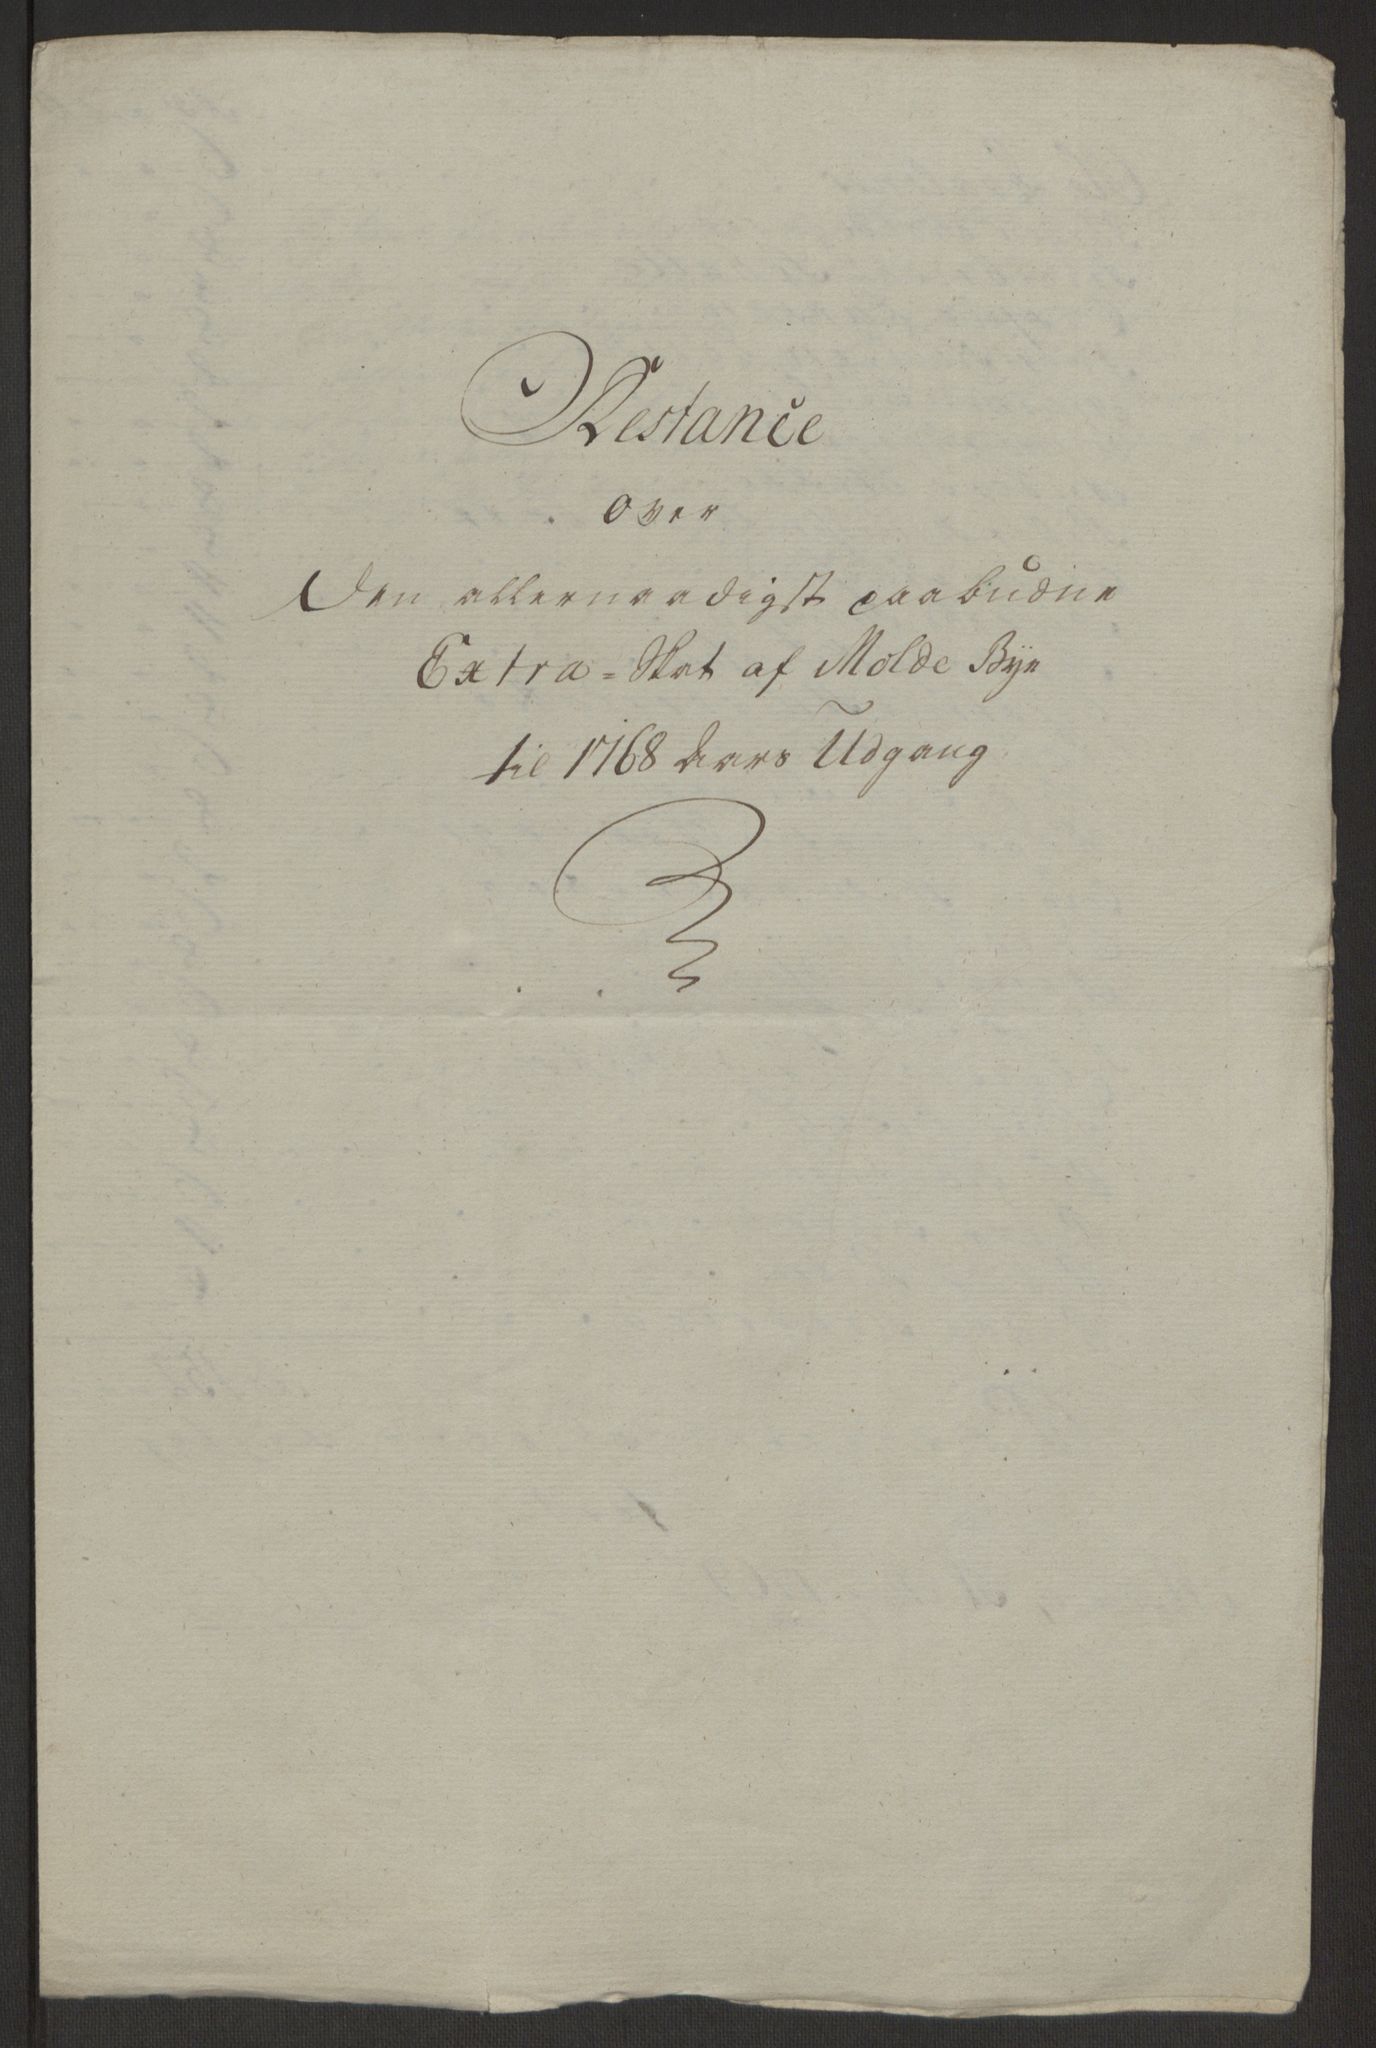 Restance
over
Den allernaadigst paabudne
Extra=Skat af Molde Bye
til 1768 Aars Udgang